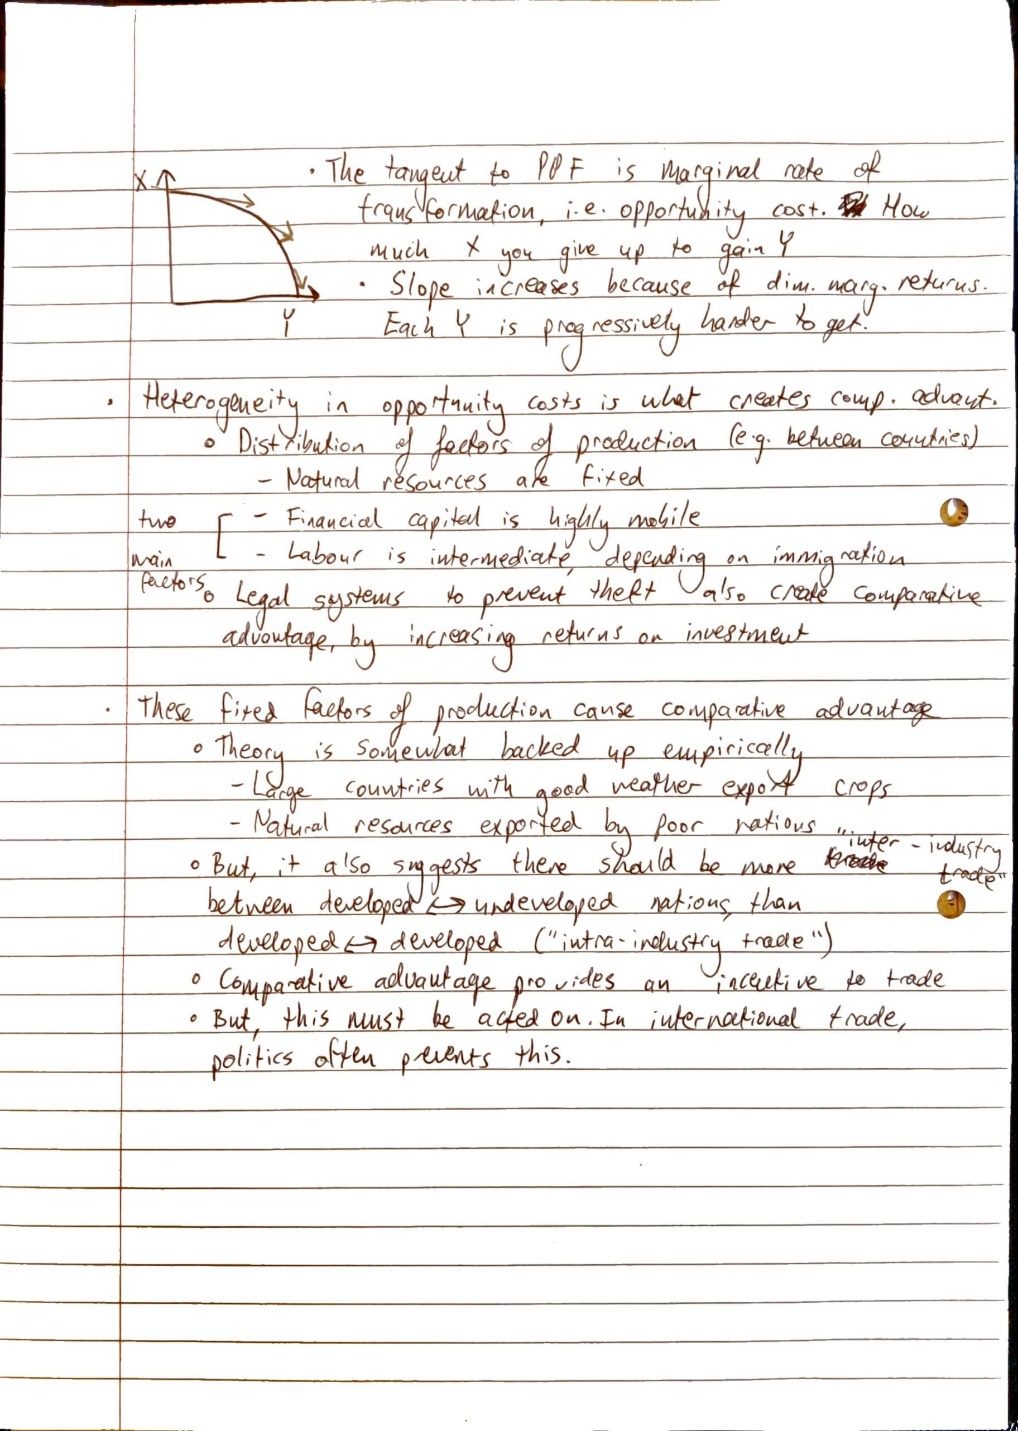 X
· The tangent to PPF is marginal rate of
transformation, i.e. opportunity cost. How
much X you give up to gain Y
· Slope increases because of dim. marg. returns.
Y
Each Y is progressively harder to get.
· Heterogeneity in opportunity costs is what creates comp. advant.
o Distribution of factors of production (e.g. between countries)
- Natural resources are fixed
two
- Financial capital is highly mobile
main
- Labour is intermediate, depending on immigration
factors
o Legal systems to prevent theft also create comparative
advantage, by increasing returns on investment
· These fixed factors of production cause comparative advantage
o Theory is somewhat backed up empirically
- Large countries with good weather export crops
- Natural resources exported by poor nations
o But, it also suggests there should be more "inter-industry trade"
between developed ↔ undeveloped nations, than
developed ↔ developed ("intra-industry trade")
o Comparative advantage provides an incentive to trade
o But, this must be acted on. In international trade,
politics often prevents this.